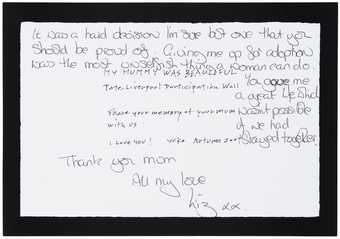 It was a hard decision I'm sure but one that you
should be proud of. Giving me up for adoption
was the most unselfish thing a woman can do.
MY MUMMY WAS BEAUTIFUL
You gave me
Tate Liverpool Participation Wall
a great life that
Share your memory of your mum
wasn't possible
with us
if we had
I love you! yoko Autumn 2004
stayed together.
Thank you mum
All my love
Liz xx.